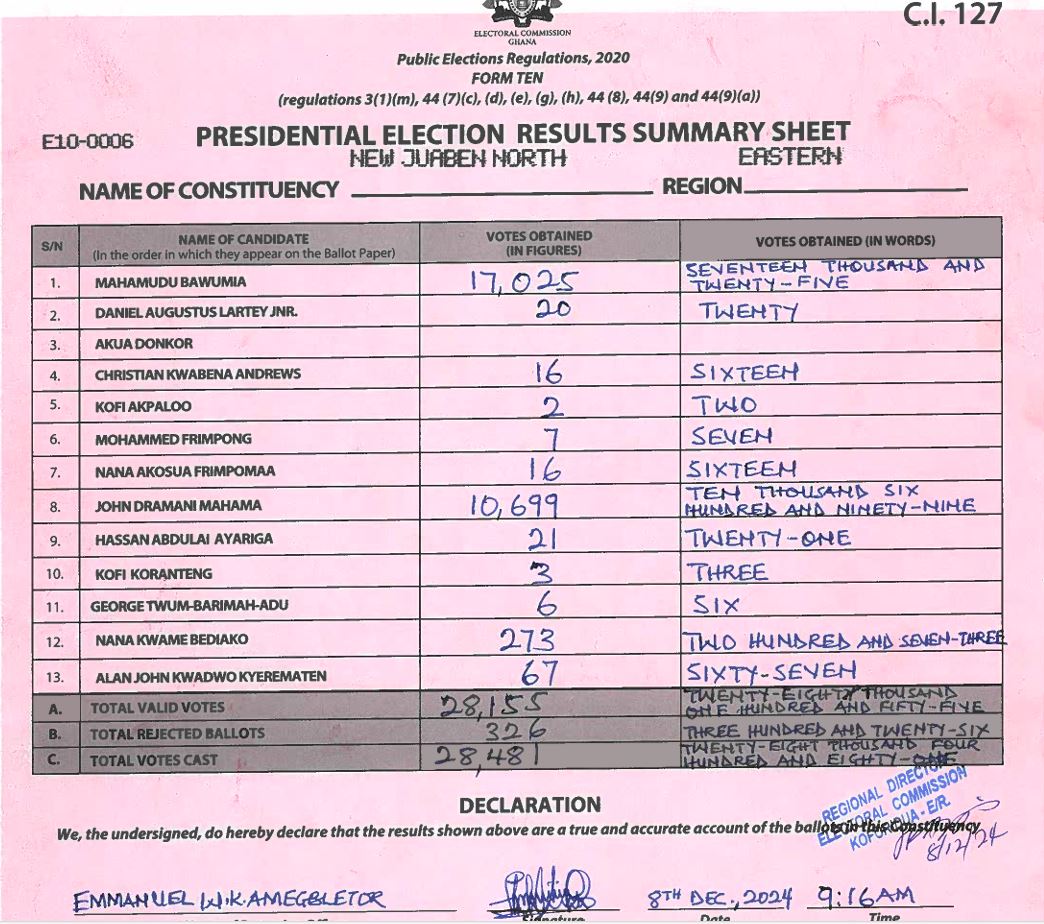 C.I. 127
ELECTORAL COMMISSION
GHANA
Public Elections Regulations, 2020
FORM TEN
(regulations 3(1)(m), 44 (7)(c), (d), (e), (g), (h), 44 (8), 44(9) and 44(9)(a))
E10-0006 PRESIDENTIAL ELECTION RESULTS SUMMARY SHEET
NEW JUABEN NORTH EASTERN
NAME OF CONSTITUENCY REGION
S/N NAME OF CANDIDATE (In the order in which they appear on the Ballot Paper) VOTES OBTAINED (IN FIGURES) VOTES OBTAINED (IN WORDS)
1. MAHAMUDU BAWUMIA 17,025 SEVENTEEN THOUSAND AND TWENTY-FIVE
2. DANIEL AUGUSTUS LARTEY JNR. 20 TWENTY
3. AKUA DONKOR
4. CHRISTIAN KWABENA ANDREWS 16 SIXTEEN
5. KOFI AKPALOO 2 TWO
6. MOHAMMED FRIMPONG 7 SEVEN
7. NANA AKOSUA FRIMPOMAA 16 SIXTEEN
8. JOHN DRAMANI MAHAMA 10,699 TEN THOUSAND SIX HUNDRED AND NINETY-NINE
9. HASSAN ABDULAI AYARIGA 21 TWENTY-ONE
10. KOFI KORANTENG 3 THREE
11. GEORGE TWUM-BARIMAH-ADU 6 SIX
12. NANA KWAME BEDIAKO 273 TWO HUNDRED AND SEVEN-THREE
13. ALAN JOHN KWADWO KYEREMATEN 67 SIXTY-SEVEN
A. TOTAL VALID VOTES 28,155 TWENTY-EIGHT THOUSAND ONE HUNDRED AND FIFTY-FIVE
B. TOTAL REJECTED BALLOTS 326 THREE HUNDRED AND TWENTY-SIX
C. TOTAL VOTES CAST 28,481 TWENTY-EIGHT THOUSAND FOUR HUNDRED AND EIGHTY-ONE
DECLARATION
We, the undersigned, do hereby declare that the results shown above are a true and accurate account of the ballots in this Constituency
REGIONAL DIRECTOR
ELECTORAL COMMISSION
KOFORIDUA - E/R.
8/12/24
EMMANUEL W.K. AMEGBLETOR 8TH DEC., 2024 9:16 AM
Signature Date Time